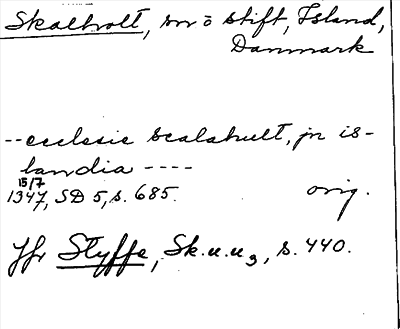 Skalholt, sn o stift, Island,
Danmark
--ecclesie scalahult, jn is-
landia ----
15/7
1347, SD 5, s. 685. orig.
Jfr Styffe, Sk.u.u3, s. 440.